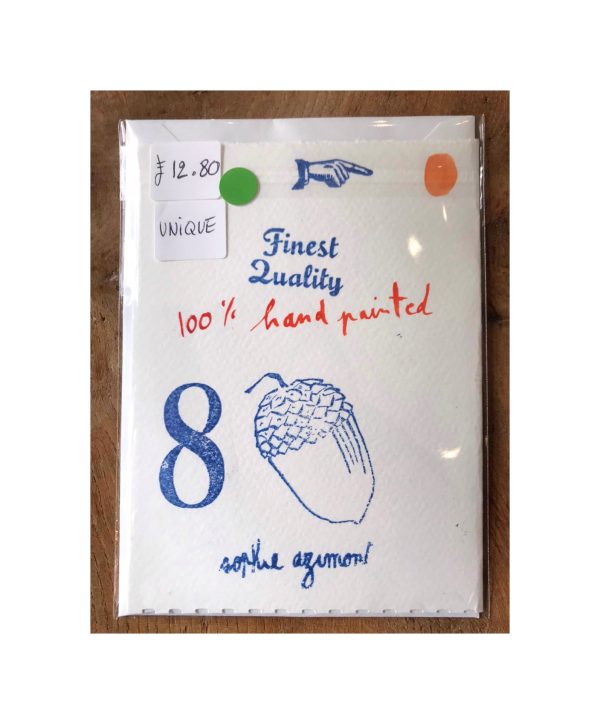 £12.80
UNIQUE
Finest
Quality
100% hand painted
8
sophie azimont